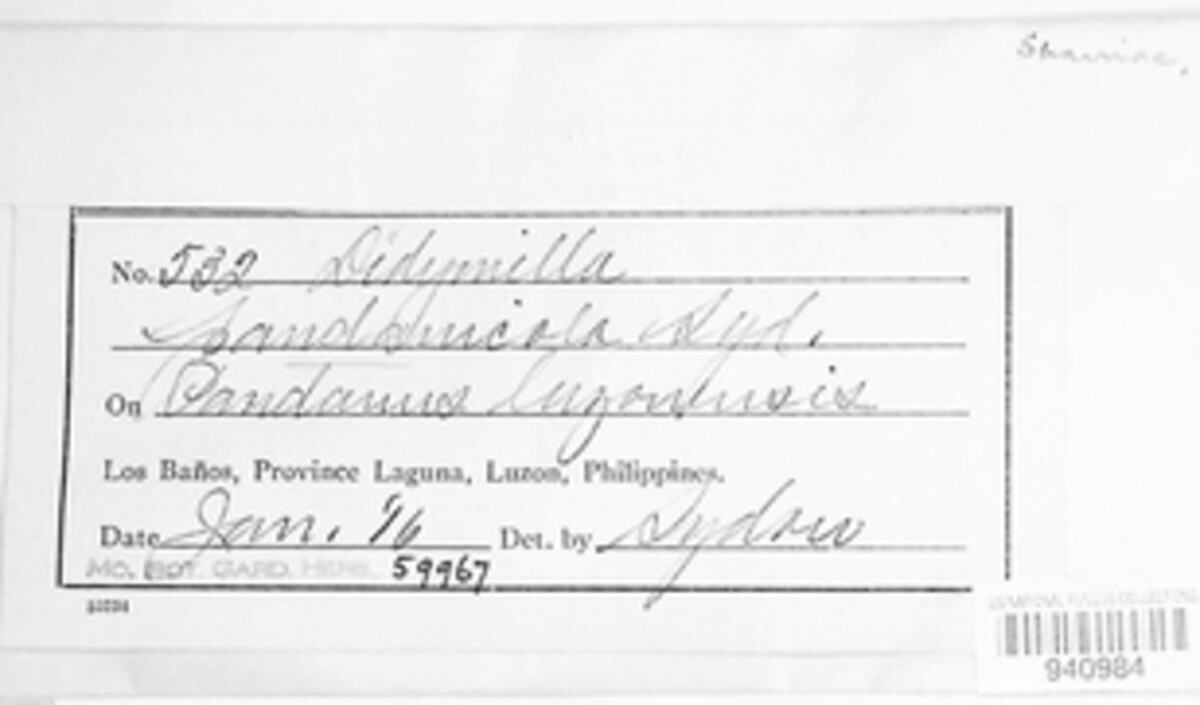 No. 532 Didymella
pandanicola Syd.
On Pandanus luzonensis
Los Baños, Province Laguna, Luzon, Philippines.
Date Jan. '16 Det. by Sydow
MO. BOT. GARD. HERB. 59967
US NATIONAL FUNGUS COLLECTIONS
940984